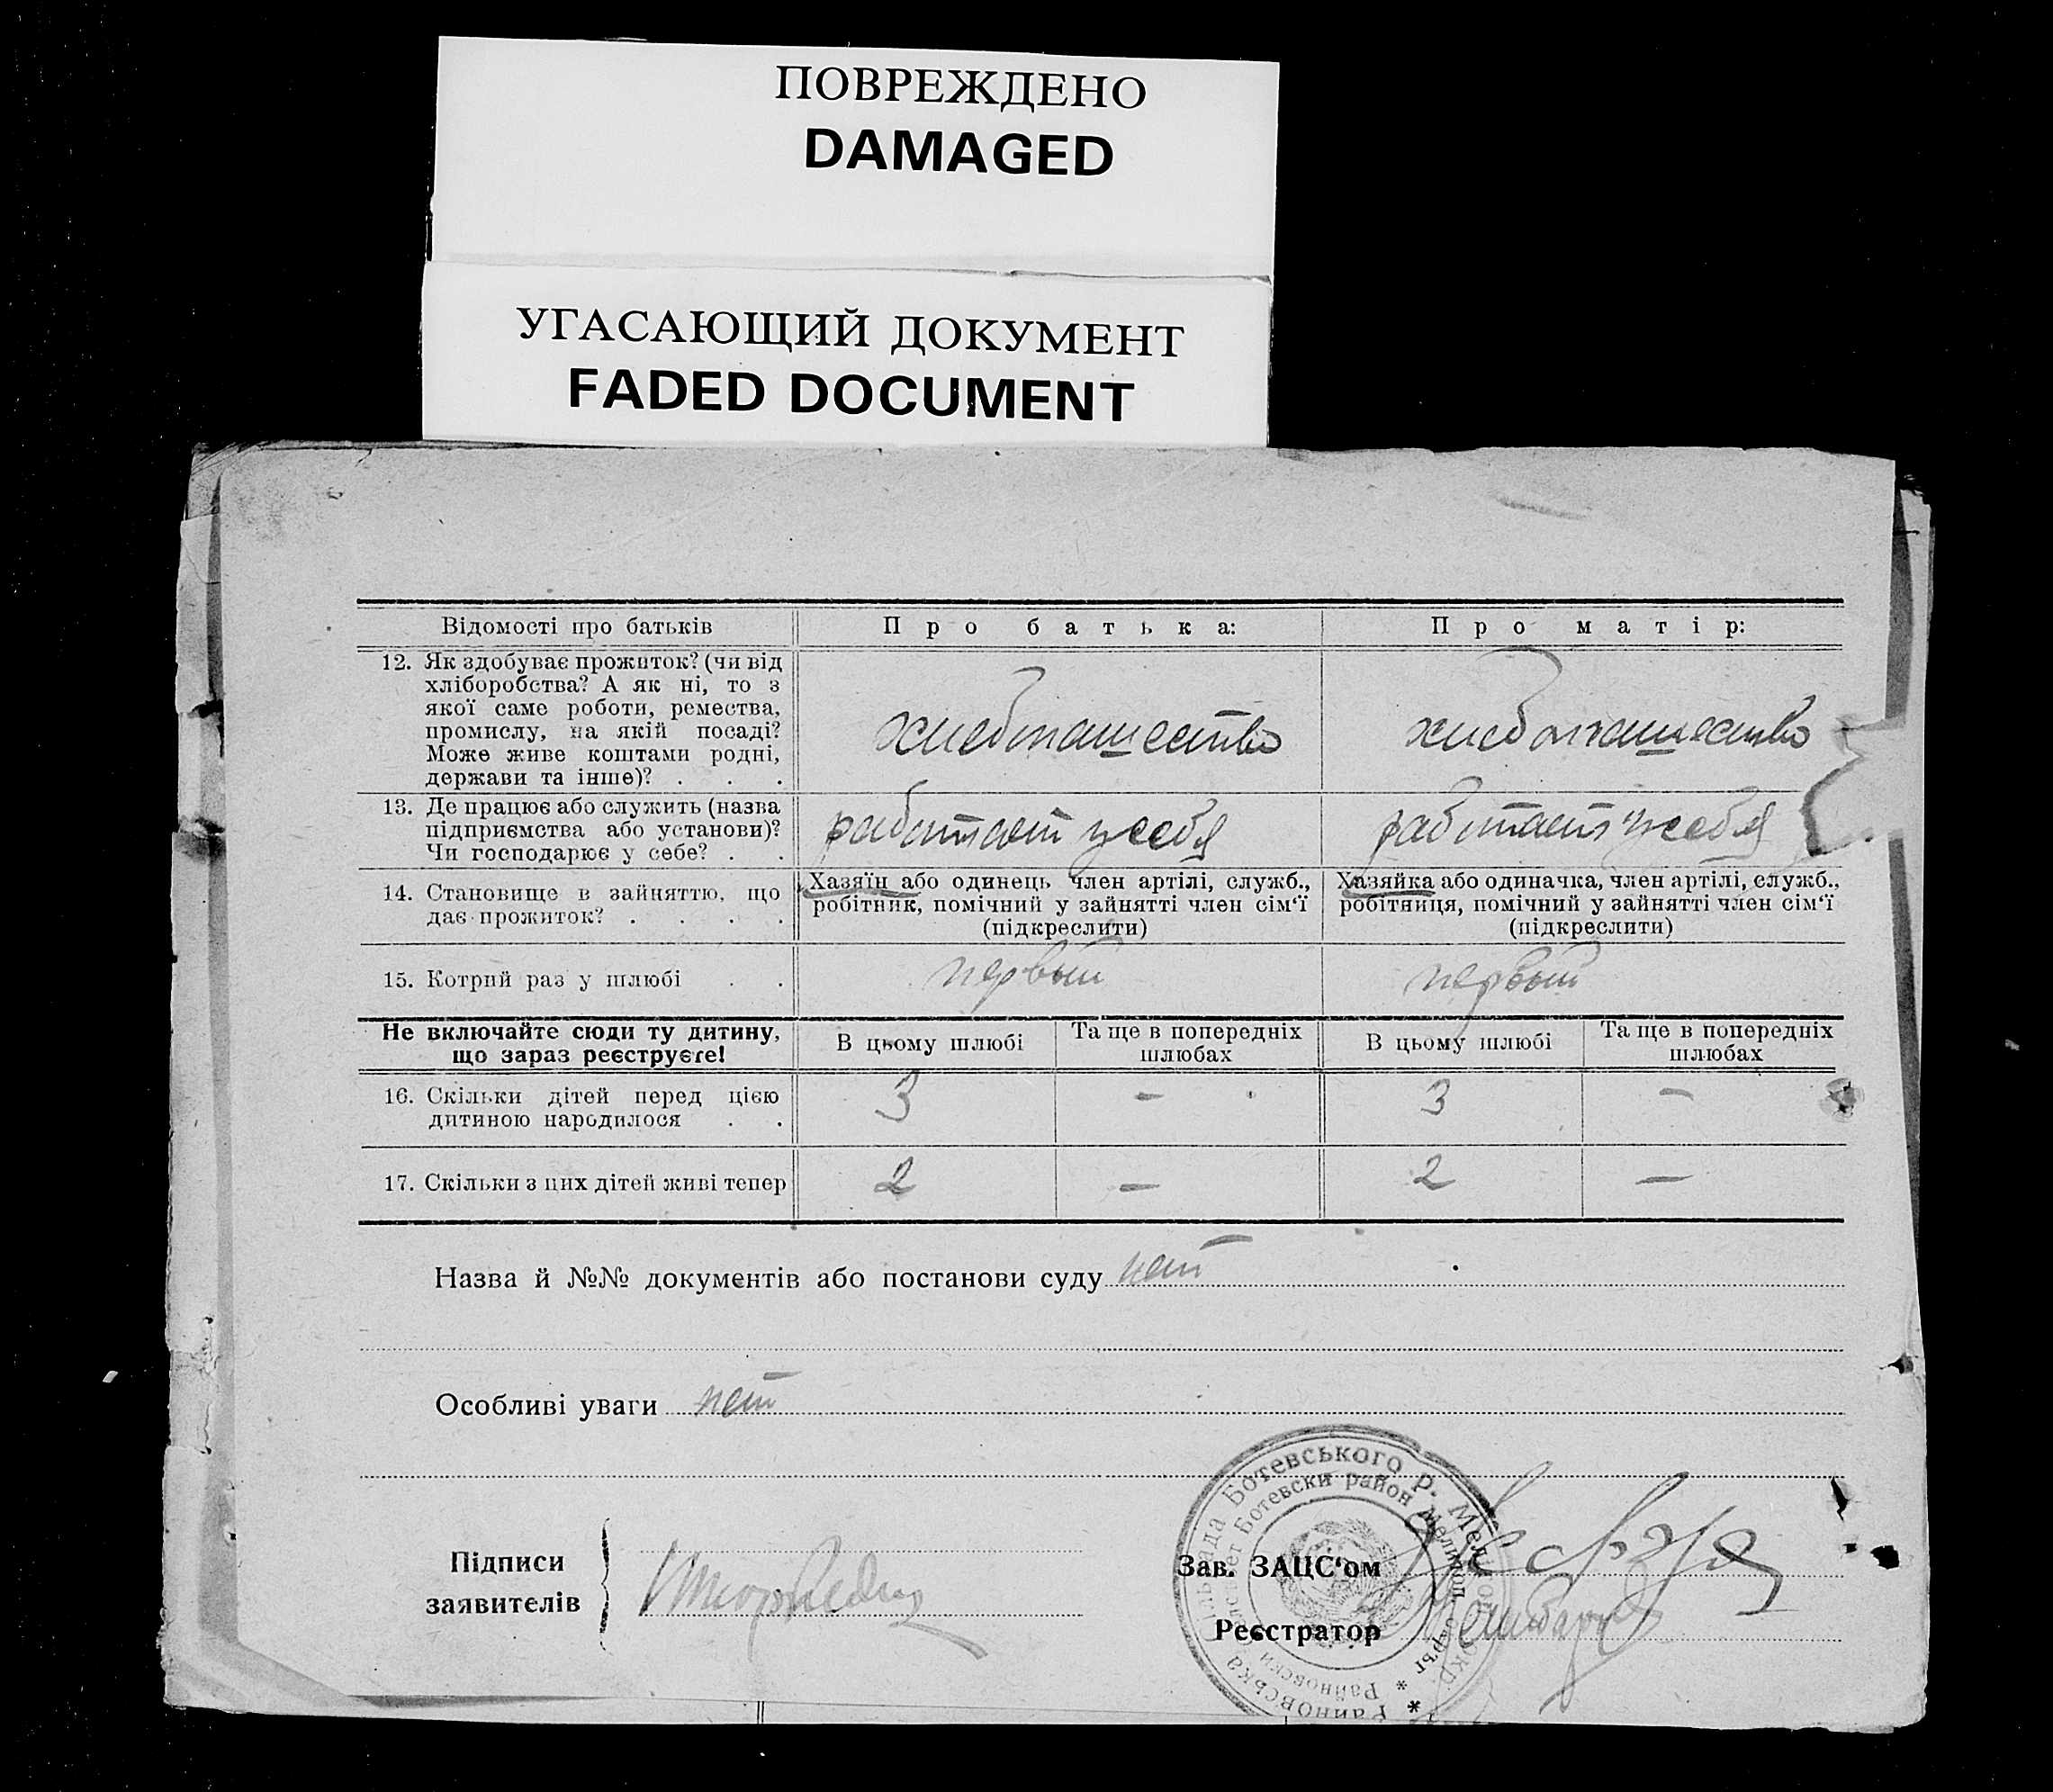 ПОВРЕЖДЕНО
DAMAGED
УГАСАЮЩИЙ ДОКУМЕНТ
FADED DOCUMENT
Відомості про батьків
Про батька:
Про матір:
12. Як здобуває прожиток? (чи від
хліборобства? А як ні, то з
якої саме роботи, ремества,
промислу, на якій посаді?
Може живе коштами родні,
держави та інше)? . . .
хлебопашество
хлебопашество
13. Де працює або служить (назва
підприємства або установи)?
Чи господарює у себе? . .
работает у себя
работает у себя
14. Становище в зайняттю, що
дає прожиток? . . . .
Хазяїн або одинець член артілі, служб.,
робітник, помічний у зайнятті член сім‘ї
(підкреслити)
Хазяйка або одиначка, член артілі, служб.,
робітниця, помічний у зайнятті член сім‘ї
(підкреслити)
15. Котрий раз у шлюбі . .
первый
первый
Не включайте сюди ту дитину,
що зараз реєструєте!
В цьому шлюбі
Та ще в попередніх
шлюбах
В цьому шлюбі
Та ще в попередніх
шлюбах
16. Скільки дітей перед цією
дитиною народилося . .
3
—
3
—
17. Скільки з цих дітей живі тепер
2
—
2
—
Назва й №№ документів або постанови суду нет
Особливі уваги нет
Підписи
заявителів
Зав. ЗАЦС‘ом
Реєстратор
Райновська сільрада Ботевського р. Мел
Райновски селсъвет Ботевски район Мелитоп. окръг